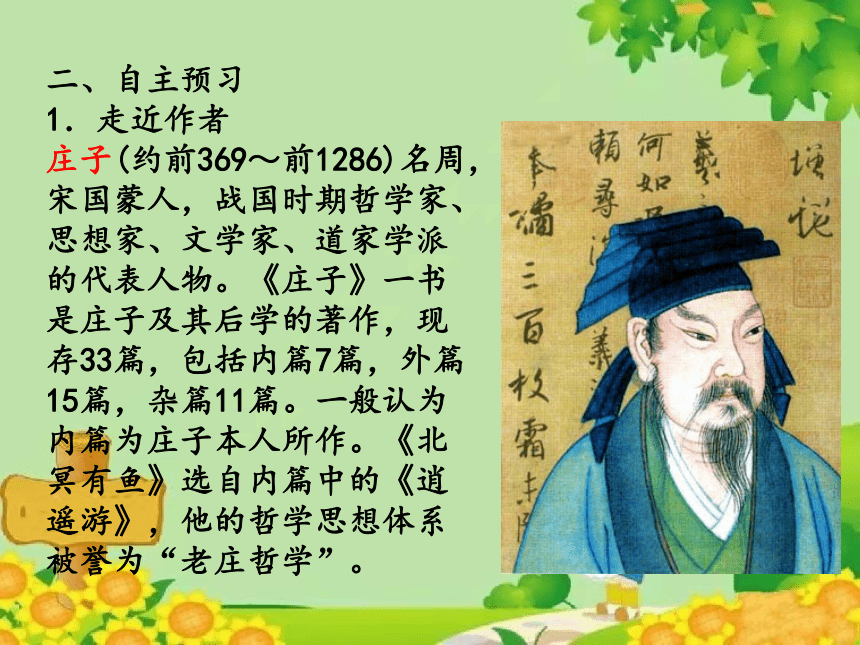 二、自主预习
1．走近作者
庄子(约前369～前1286)名周，
宋国蒙人，战国时期哲学家、
思想家、文学家、道家学派
的代表人物。《庄子》一书
是庄子及其后学的著作，现
存33篇，包括内篇7篇，外篇
15篇，杂篇11篇。一般认为
内篇为庄子本人所作。《北
冥有鱼》选自内篇中的《逍
遥游》，他的哲学思想体系
被誉为“老庄哲学”。
羲
何如
奉橘三百枚霜未